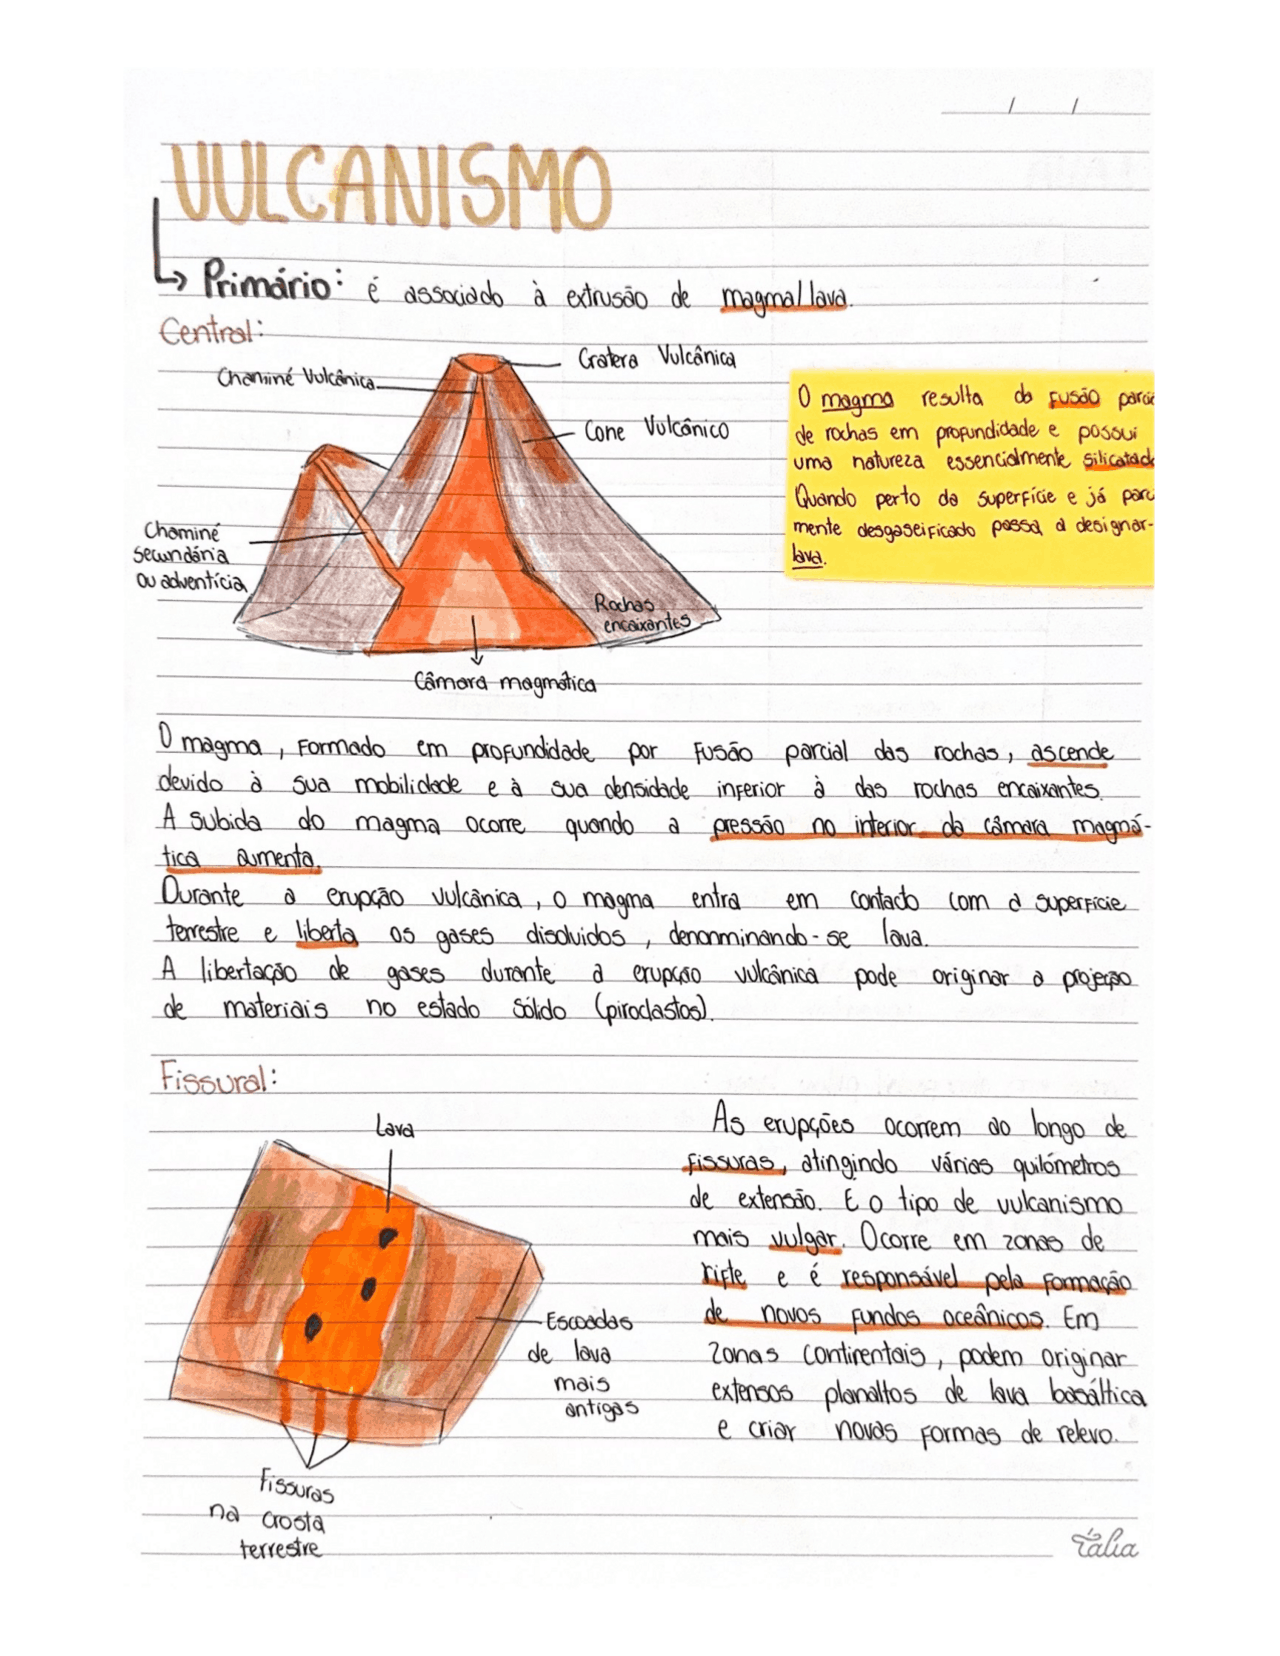 VULCANISMO
Primário: é associado à extrusão de magma/lava.
Central:
Cratera Vulcânica
Chaminé Vulcânica
Cone Vulcânico
Chaminé
secundária
ou adventícia
Rochas
encaixantes
Câmara magmática
O magma resulta da fusão
de rochas em profundidade e possui
uma natureza essencialmente
Quando perto da superfície e já
mente desgaseificado passa a designar-
lava.
O magma, formado em profundidade por fusão parcial das rochas, ascende
devido à sua mobilidade e à sua densidade inferior à das rochas encaixantes.
A subida do magma ocorre quando a pressão no interior da câmara magmá-
tica aumenta.
Durante a erupção vulcânica, o magma entra em contacto com a superfície
terrestre e liberta os gases dissolvidos, denonminando-se lava.
A libertação de gases durante a erupção vulcânica pode originar a projeção
de materiais no estado sólido (piroclastos).
Fissural:
Lava
Escoadas
de lava
mais
antigas
Fissuras
na crosta
terrestre
As erupções ocorrem ao longo de
fissuras, atingindo várias quilómetros
de extensão. É o tipo de vulcanismo
mais vulgar. Ocorre em zonas de
rifte e é responsável pela formação
de novos fundos oceânicos. Em
zonas continentais, podem originar
extensos planaltos de lava basáltica
e criar novas formas de relevo.
Tália